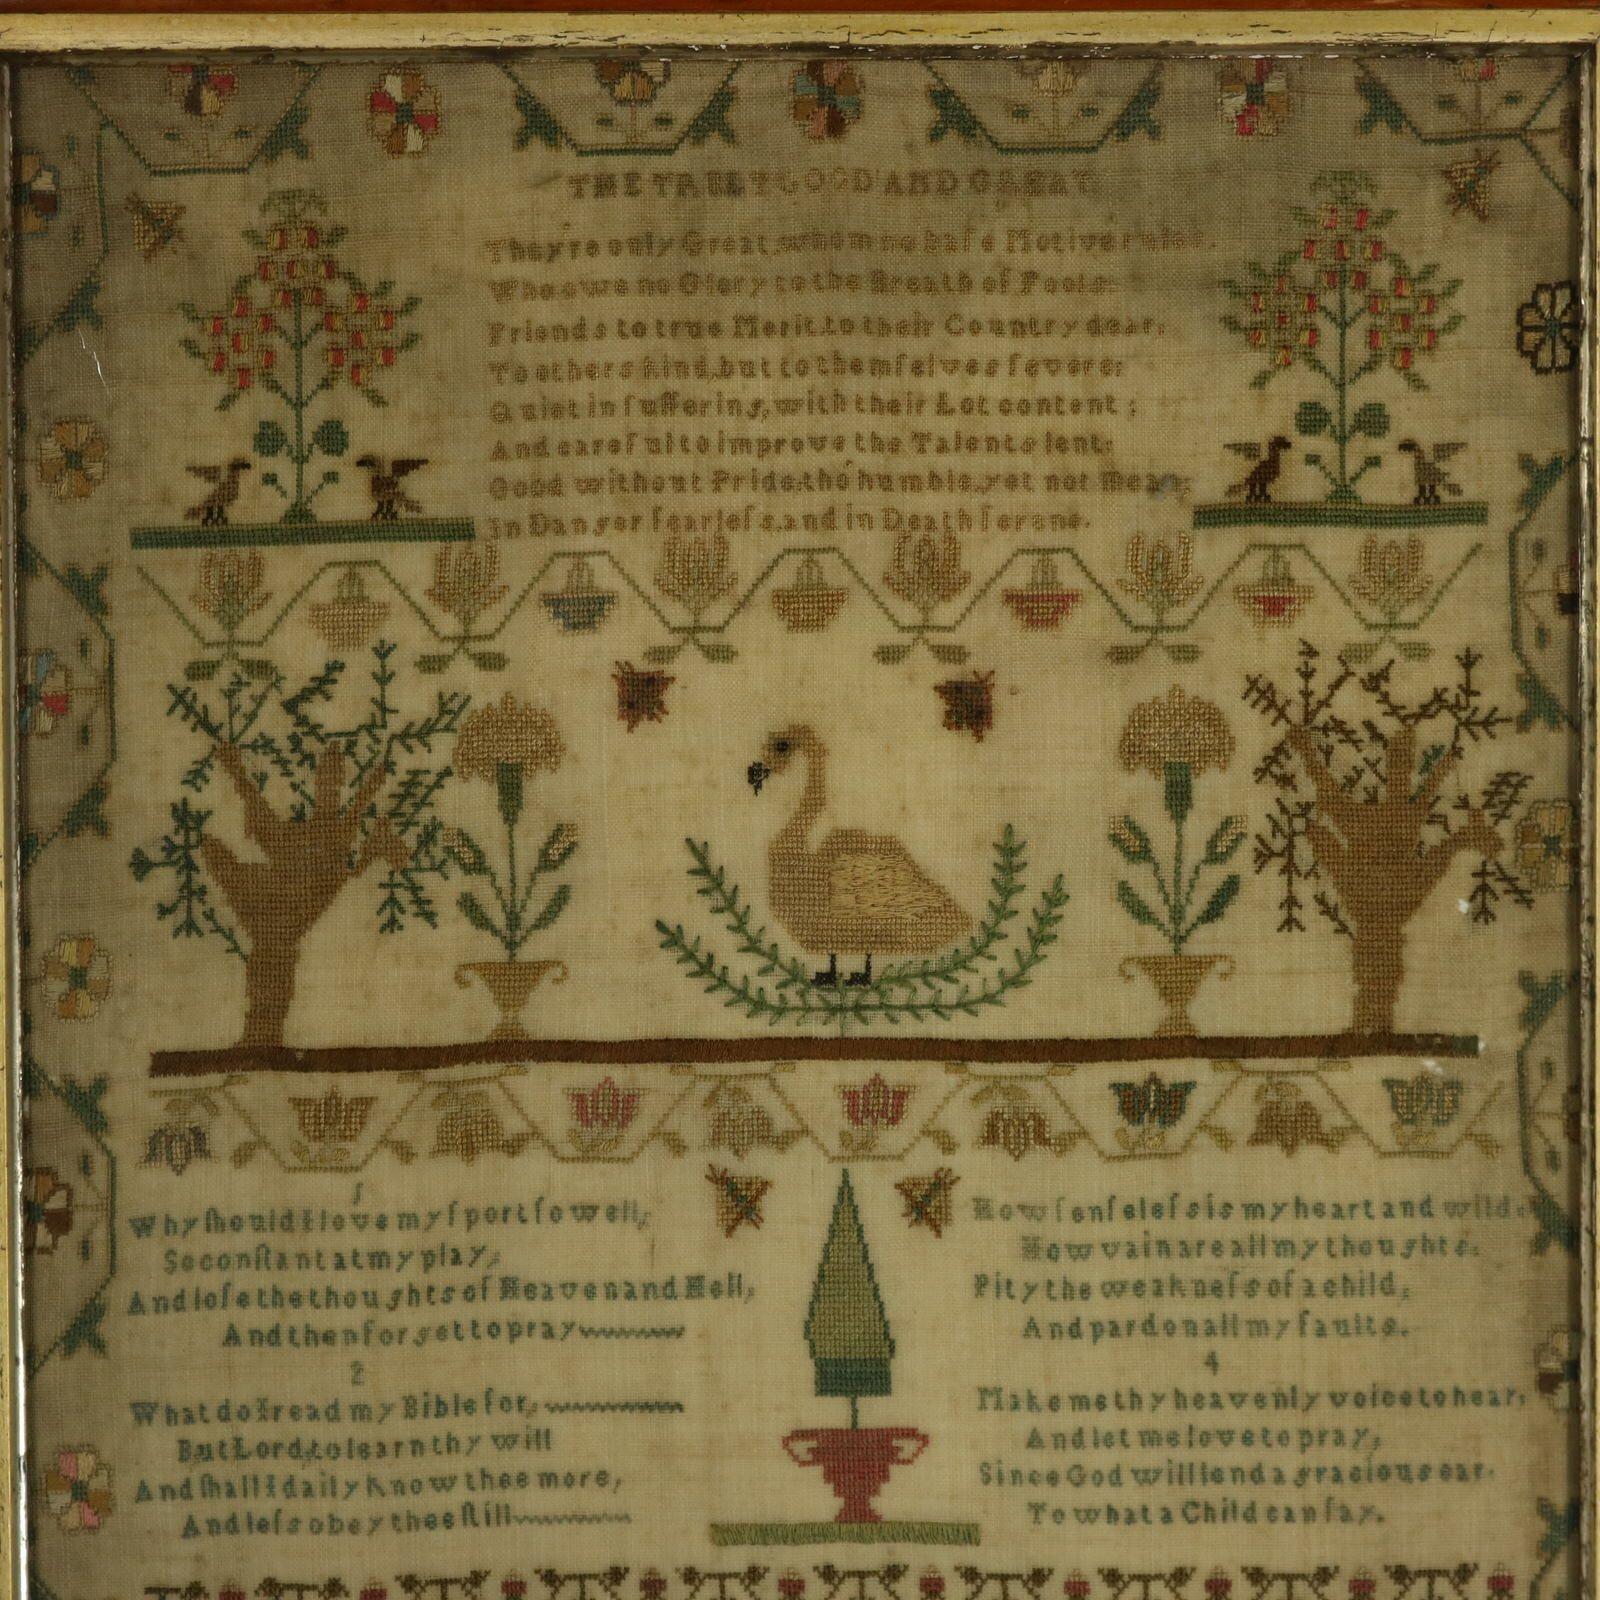 THE TRULY GOOD AND GREAT
They're only Great, whom no baſe Motive rules.
Who owe no Glory to the Breath of Fools:
Friends to true Merit, to their Country dear,
To others kind, but to themſelves ſevere;
Quiet in ſuffering, with their Lot content;
And careful to improve the Talents lent;
Good without Pride, tho' humble, yet not Mean;
In Danger fearleſs, and in Death ſerene.
1
Why ſhould I love my ſport ſo well,
So conſtant at my play,
And loſe the thoughts of Heaven and Hell,
And then forget to pray
2
What do I read my Bible for,
But Lord, to learn thy will
And ſhall I daily know thee more,
And leſs obey thee ſtill
How ſenſeleſs is my heart and wild.
How vain are all my thoughts.
Pity the weakneſs of a child,
And pardon all my faults.
4
Make me thy heavenly voice to hear,
And let me love to pray,
Since God will lend a gracious ear.
To what a Child can ſay.